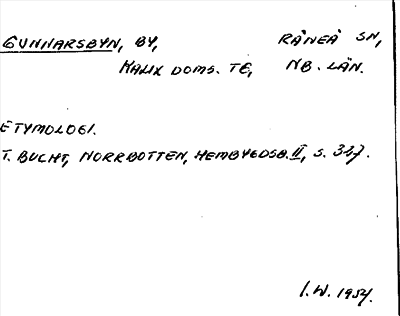 GUNNARSBYN, BY, RÅNEÅ SN,
KALIX DOMS. TG, NB. LÄN.
ETYMOLOGI.
T. BUCHT, NORRBOTTEN, HEMBYGDSB. II, S. 327.
I. W. 1954.